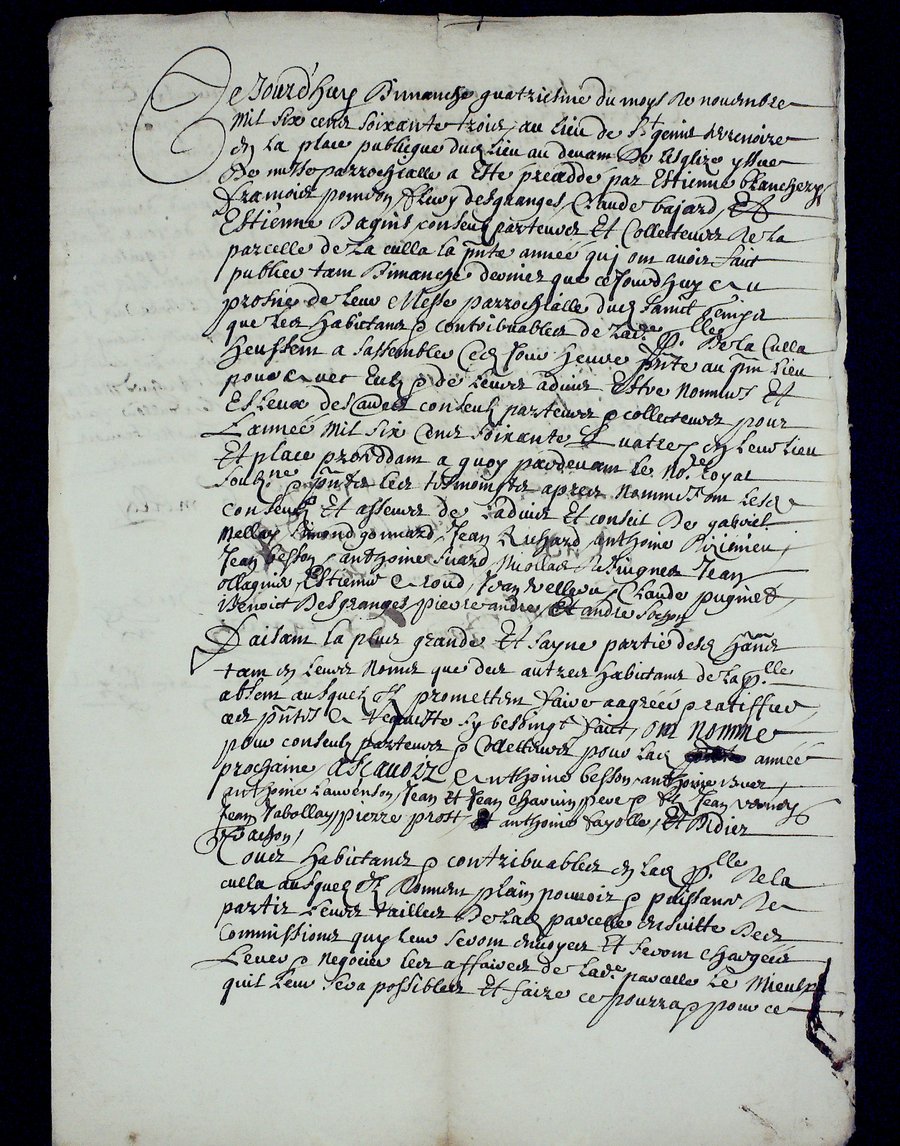 Ce Jourd'huy Dimanche quatriesme du moys de novembre
Mil six cens soixante trois, au lieu de St genis terrenoire
en la place publique dud lieu au devant de l'esglize yssue
de messe parrochialle a esté proceddé par Estienne
pourron, fleury desgranges, Claude bajard, Et
Estienne Paquis conseuls parteurs Et Collecteurs de La
parcelle de La culla la pnte année quj ont avoir faict
publier tant Dimanche dernier que ce Jourd'huy au
prosne de leur Messe parrochialle dud sainct genis
que les habitans & contribuables de lade plle De la Culla
heussent a s'assembler Ced Jour heure pnte au pnt lieu
pour avec Eulx & de leurs advis Estre nommés Et
Esleux des autres conseuls parteurs & collecteurs pour
L'année Mil six Cens soixante Et quatre, en leur lieu
Et place proceddant a quoy pardevant le Nore royal
soubzne & pntz les tesmoings apres nommés ont lesd
conseulz Et asseurs de L'advis Et conseil De gabriel
mellay Simond gonnard, Jean Richard anthoine
Jean besson, anthoine Nicollas Jean
ollagnier, Estienne Jean Claude puginet,
Benoict Desgranges pierre andre, Et andre
Faisant la plus grande Et sayne partie desd hans
tant en leurs noms que des autres habitans de la plle
absent ausquelz ilz promettent faire aagréer & ratiffier
ces pntes & requeste sy besoingt faict, ont nommé
pour conseulz parteurs & collecteurs pour lad année
prochaine, ascavoir anthoine besson anthoine
anthoine Laurenson, Jean Et Jean chavin pere & fils Jean
Jean Tabollay, pierre prost, Et anthoine fayolle, Et Didier

Tous habitans & contribuables en lad plle de la
culla ausquelz ilz donnent plain pouvoir & puissance de
partir leurs tailles de lad parcelle ensuitte des
Commissions quj leur seront envoyés Et seront chargés
Lever & negocier les affaires de lade parcelle le mieulx
quil leur sera possibles Et faire ce pour ce